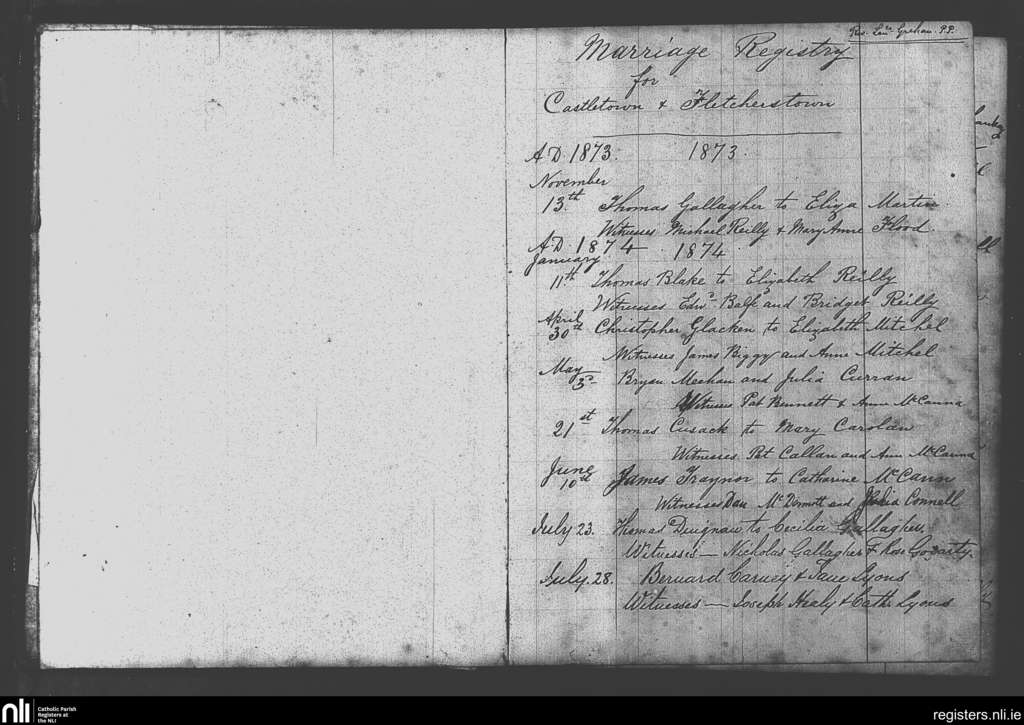 Rev. Lau. Grehan. P.P.
Marriage Registry
for
Castletown & Fletcherstown
A.D. 1873. 1873.
November
13.th Thomas Gallagher to Eliza Martin
Witnesses Michael Reilly & Mary Anne Flood.
A.D. 1874 1874
January
11th Thomas Blake to Elizabeth Reilly
Witnesses Edwd. Balfe and Bridget Reilly
April
30th Christopher Glacken to Elizabeth Mitchel
Witnesses James Biggy and Anne Mitchel
May
3d Bryan Meehan and Julia Curran
Witnesses Pat Bennett & Anne McCanna
21st Thomas Cusack to Mary Carolan
Witnesses Pat Callan and Ann McCanna
June
10th James Traynor to Catharine McCann
Witnesses Dan McDermott and Julia Connell
July 23. Thomas Duignan to Cecilia Gallagher
Witnesses — Nicholas Gallagher & Rose Gogarty.
July. 28. Bernard Carney & Jane Lyons
Witnesses — Joseph Healy & Cath. Lyons
nli Catholic Parish
Registers at
the NLI
registers.nli.ie